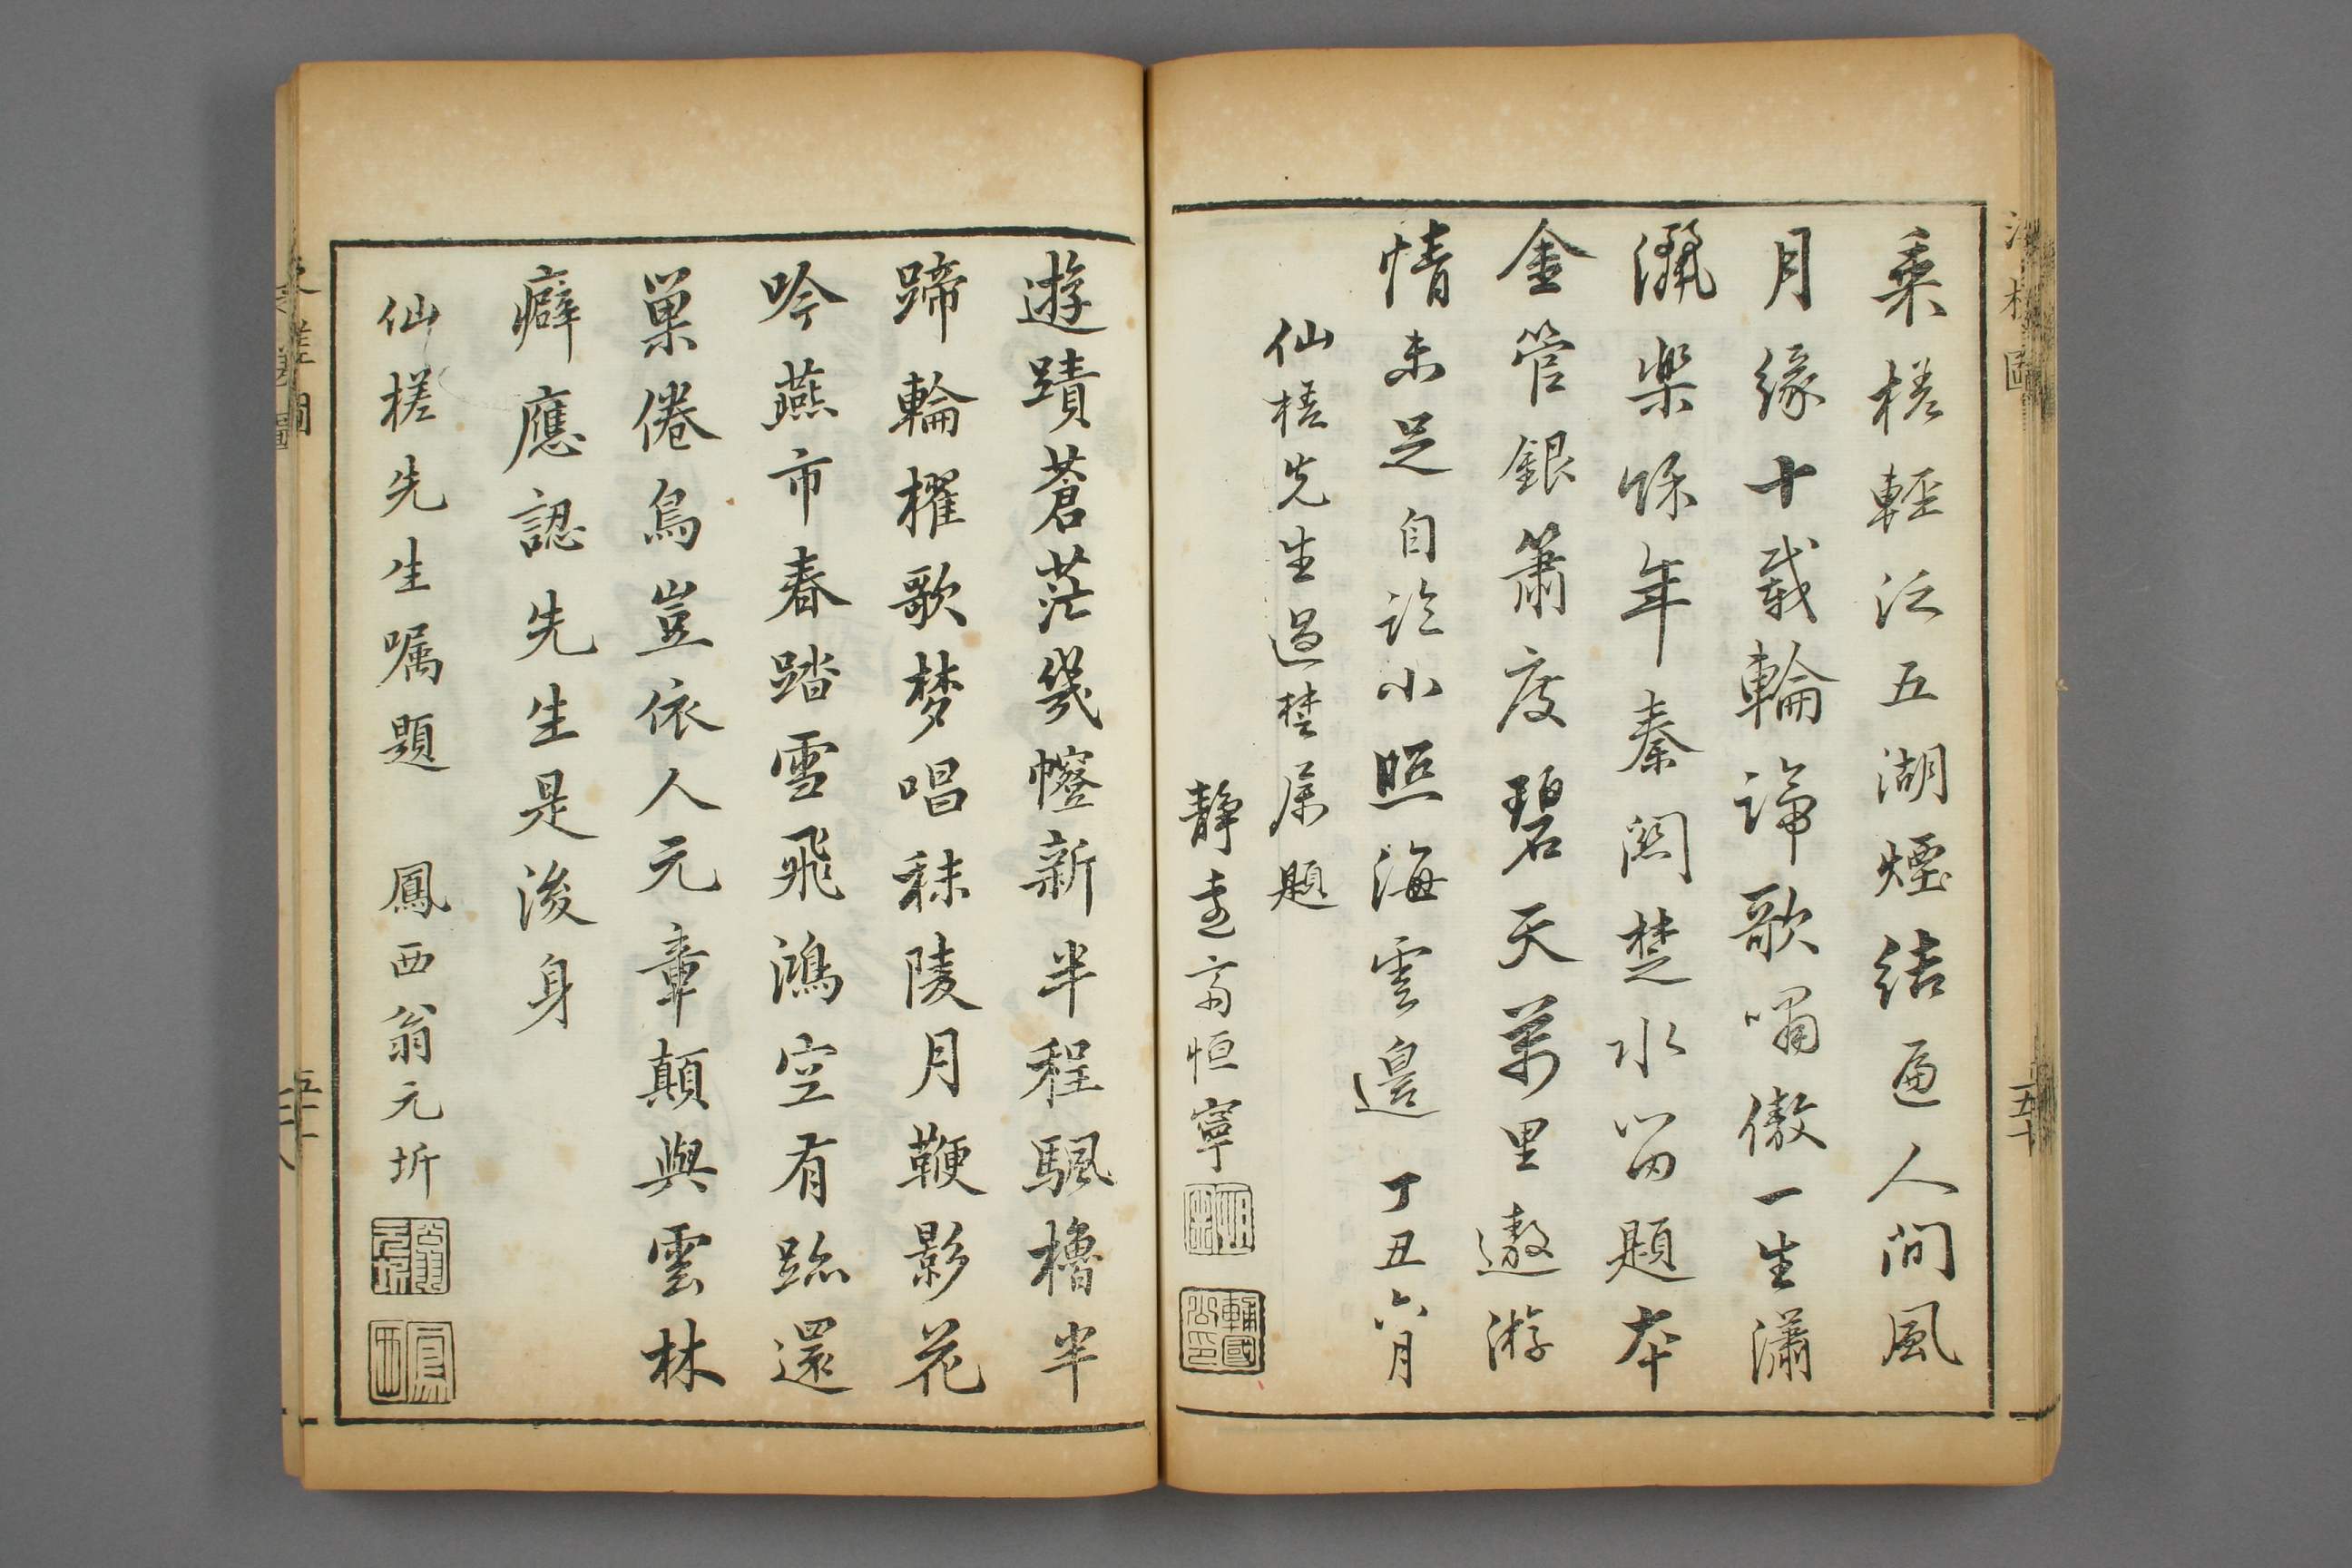 乘槎輕泛五湖煙結遍人間風
月緣十載輪蹄歌嘯傲一生瀟
灑樂餘年秦關楚水留題本
金管銀簫度碧天萬里遨游
情未足自認小照海雲邊 丁丑六月
仙槎先生過楚屬題
靜壹齋恒寧
輔國公印
遊蹟蒼茫幾幰新半程颿櫓半
蹄輪櫂歌梦唱秣陵月鞭影花
吟燕市春踏雪飛鴻空有跡還
巢倦鳥豈依人元章顛與雲林
癖應認先生是後身
仙槎先生嘱題 鳳西翁元圻
翁元圻
鳳西